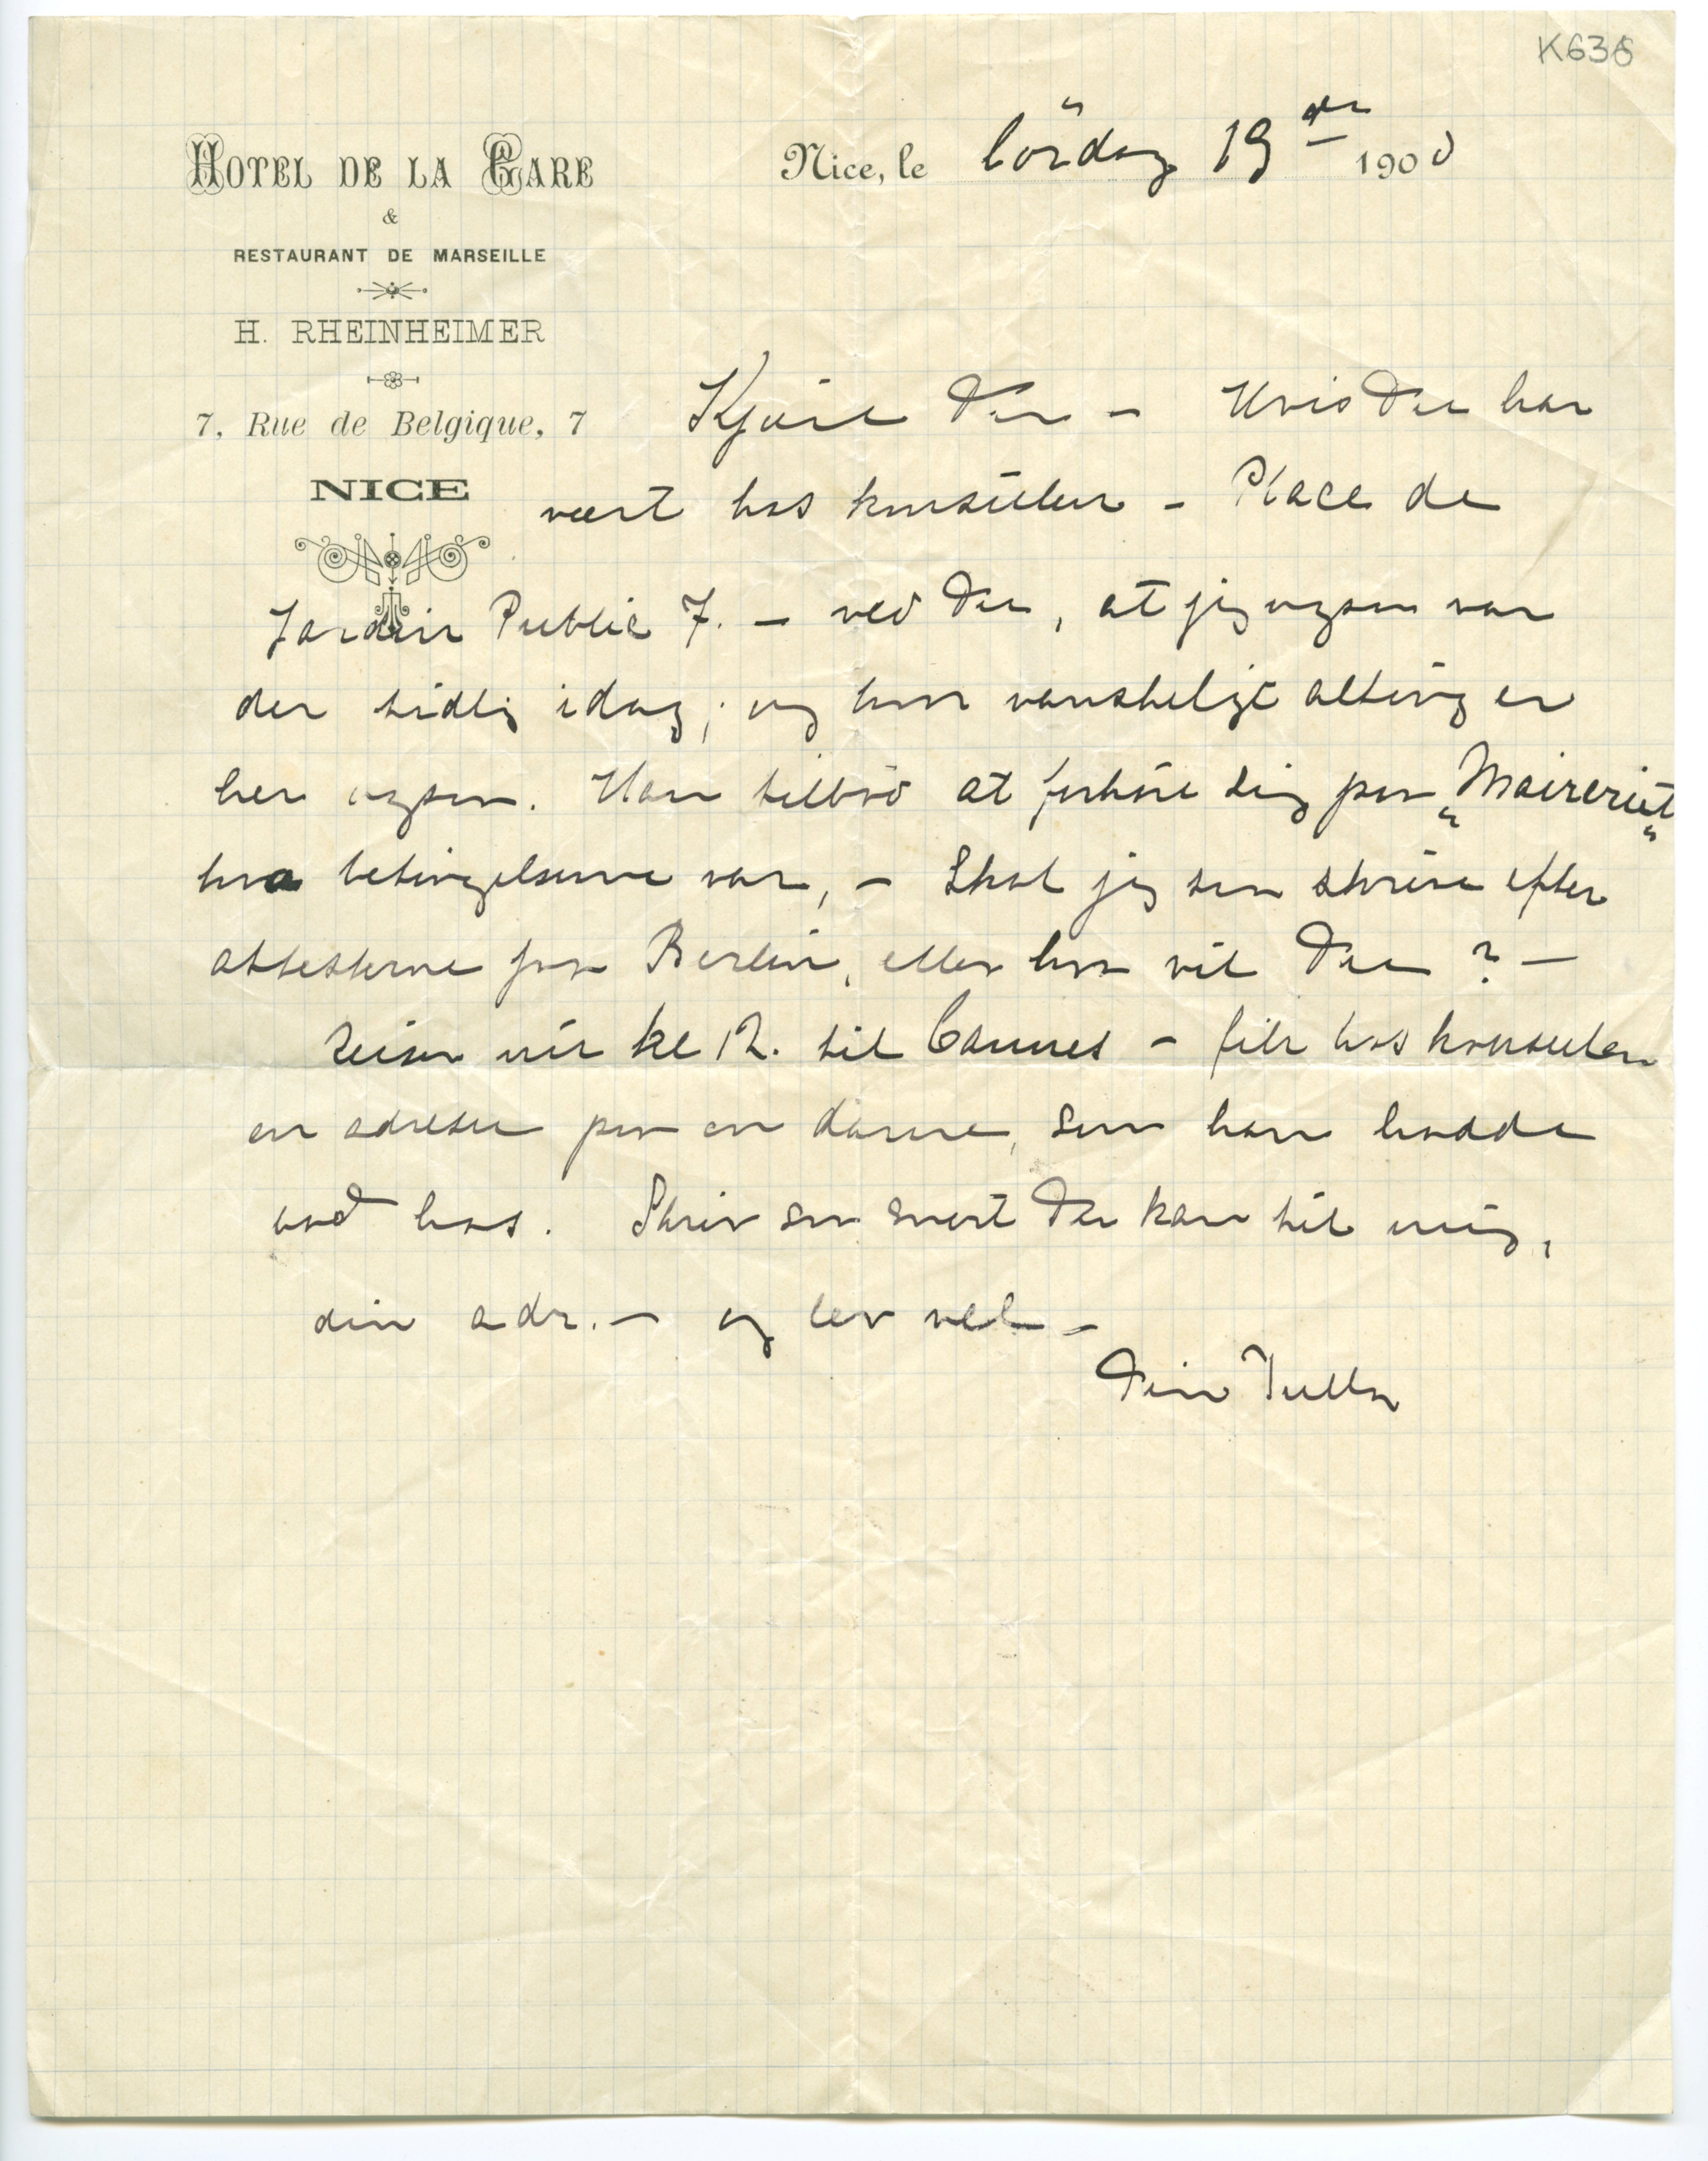 K636
HOTEL DE LA GARE
&
RESTAURANT DE MARSEILLE
H. RHEINHEIMER
7, Rue de Belgique, 7
NICE
Nice, le lördag 19de 1900
Kjære Du – Hvis Du har
vært hos konsulen – Place de
Jardin Public 7. – ved Du, at jeg ogsaa var
der tidlig idag; og hvor vanskeligt alting er
her ogsaa. Han tilbød at forhöre sig paa „Maireriet“
hva betingelserne var, – Skal jeg saa skrive efter
attesterne fra Berlin, eller hva vil Du? –
Reiser nu kl 12. til Cannes – fik hos konsulen
en adresse paa en dame, som han hadde
bod hos. Skriv saa snart Du kan til mig,
din adr. – og lev vel –
Din Tulla